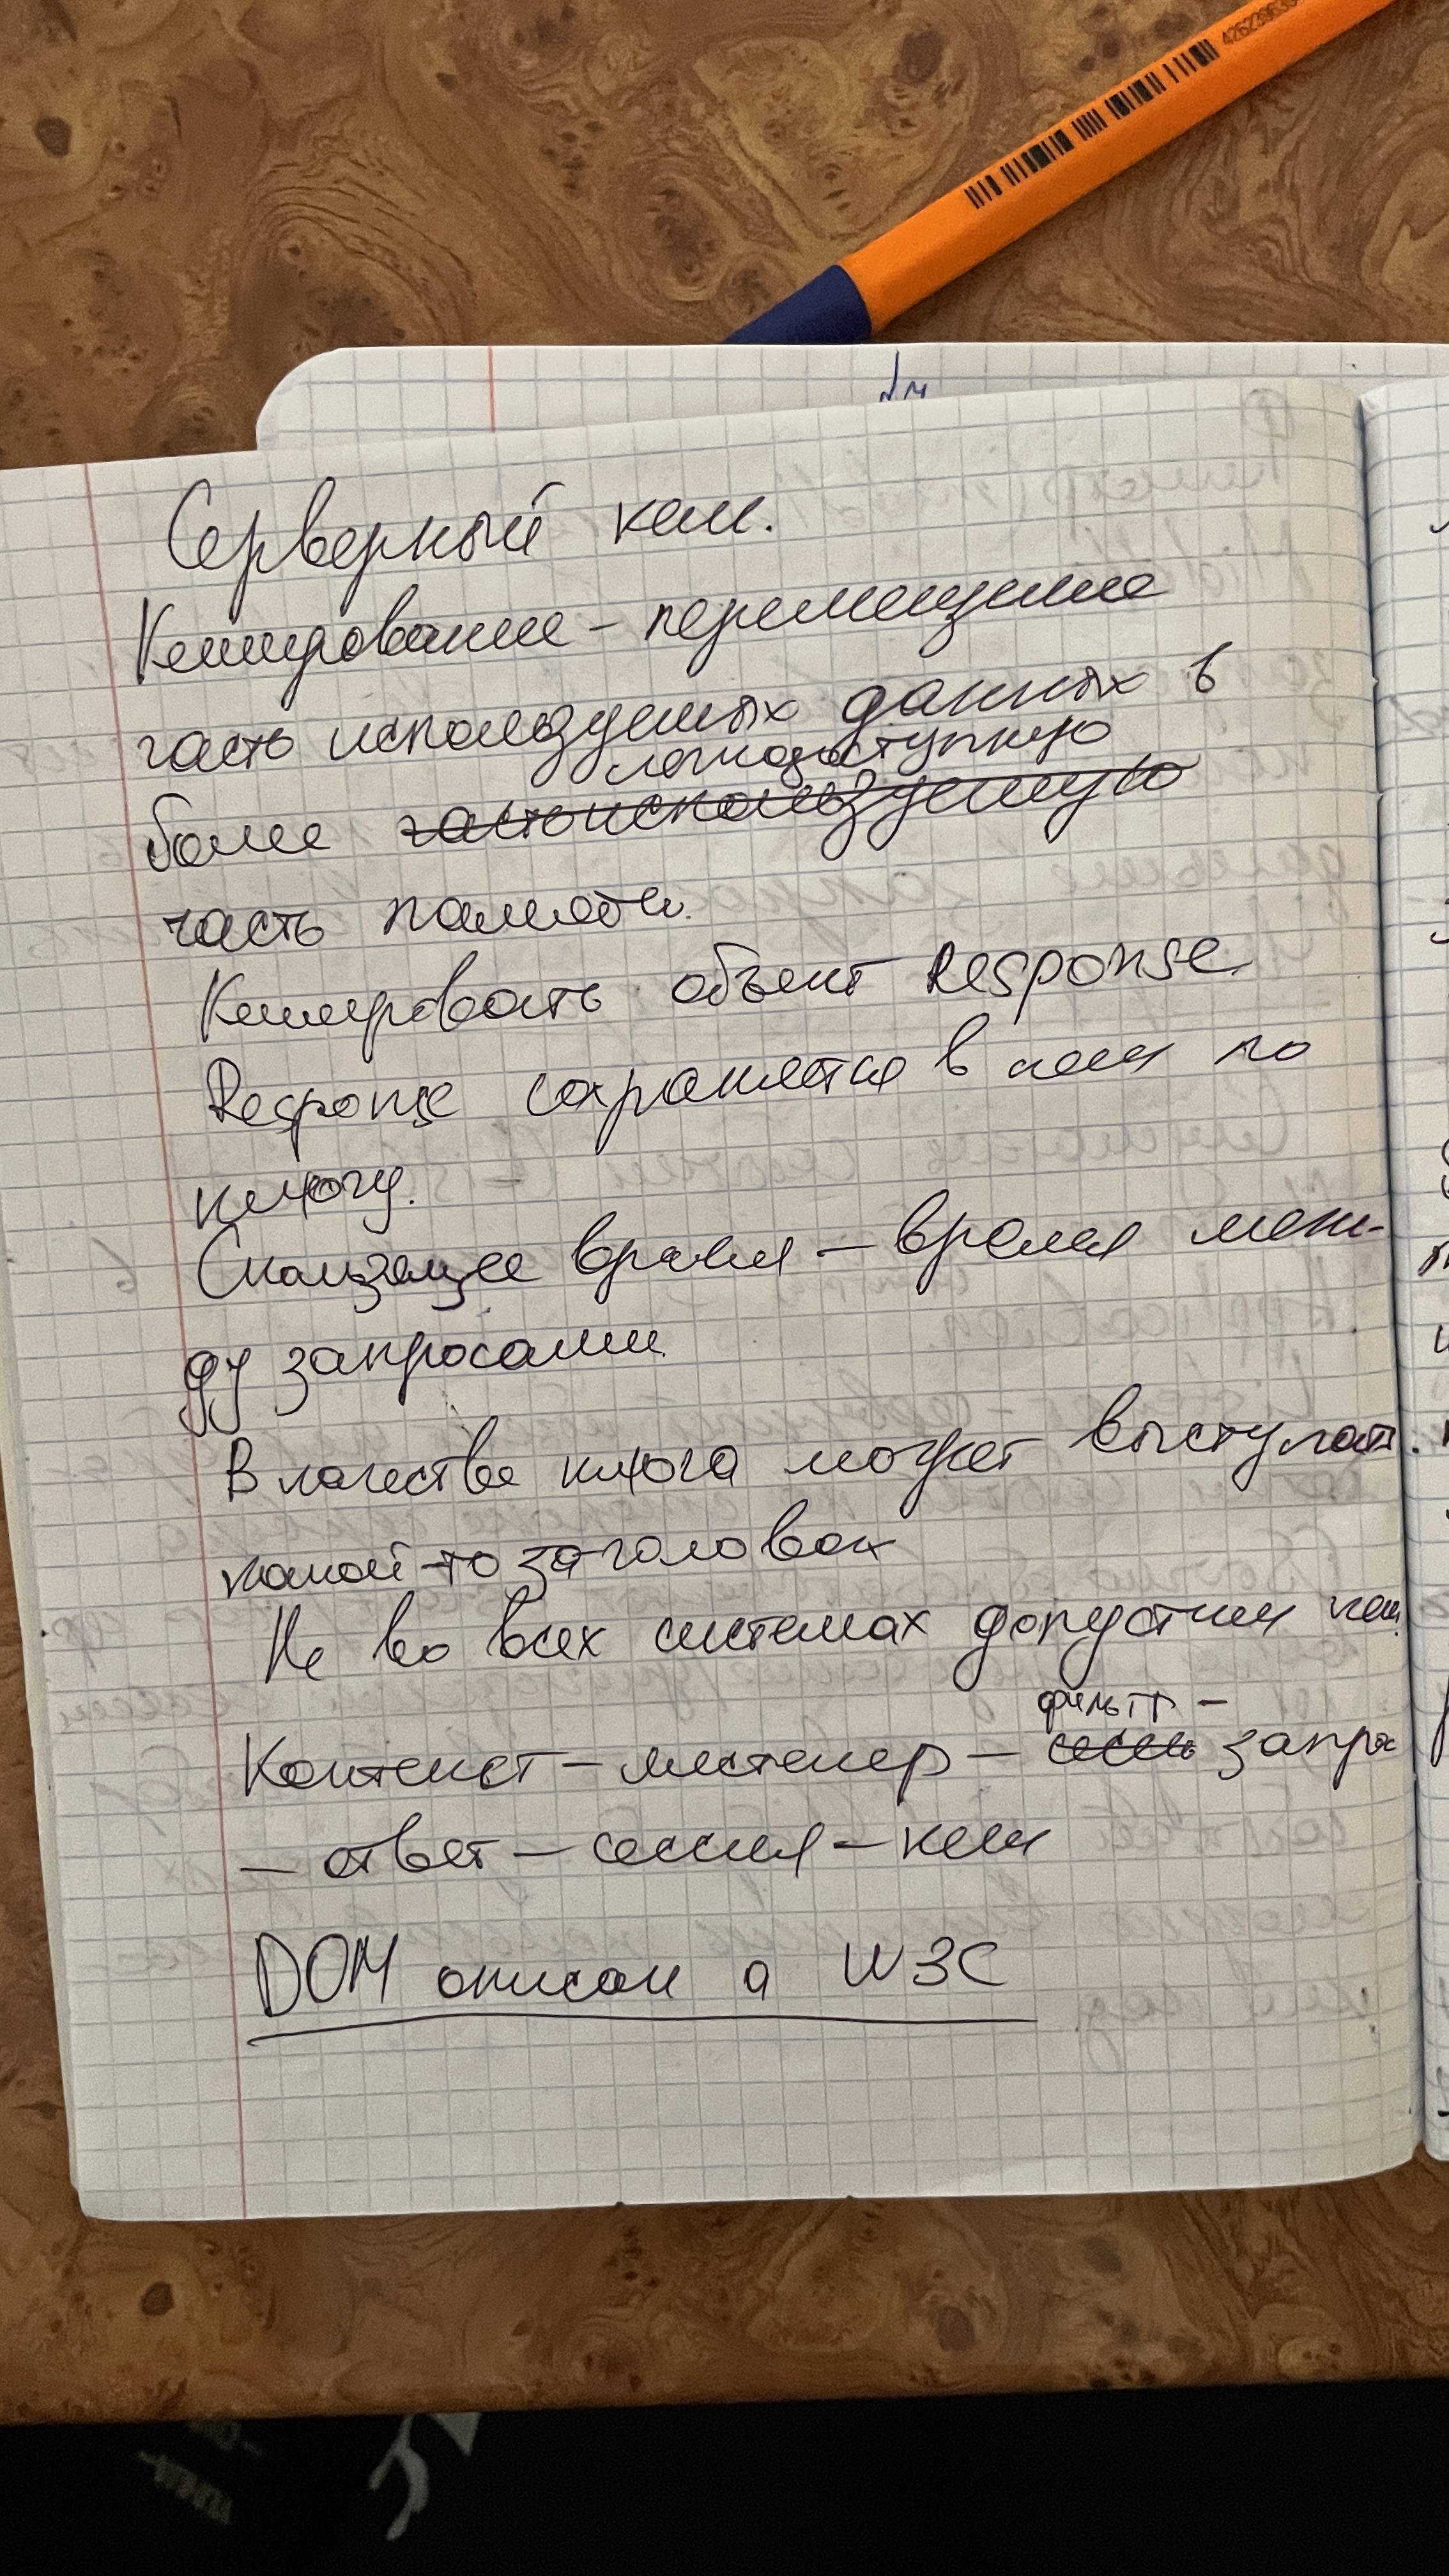 Серверный кеш.
Кеширование – перемещение
часть используемых данных в
легкодоступную
более частоиспользуемую
часть памяти.
Кешировать объект Response
Response сохраняется в кеш по
ключу.
Скользящее время – время меж-
ду запросами
В качестве ключа может выступать
какой-то заголовок
Не во всех системах допустим кеш
фильтр –
Контекст – листенер – запрос
– ответ – сессия – кеш
DOM описан в W3C